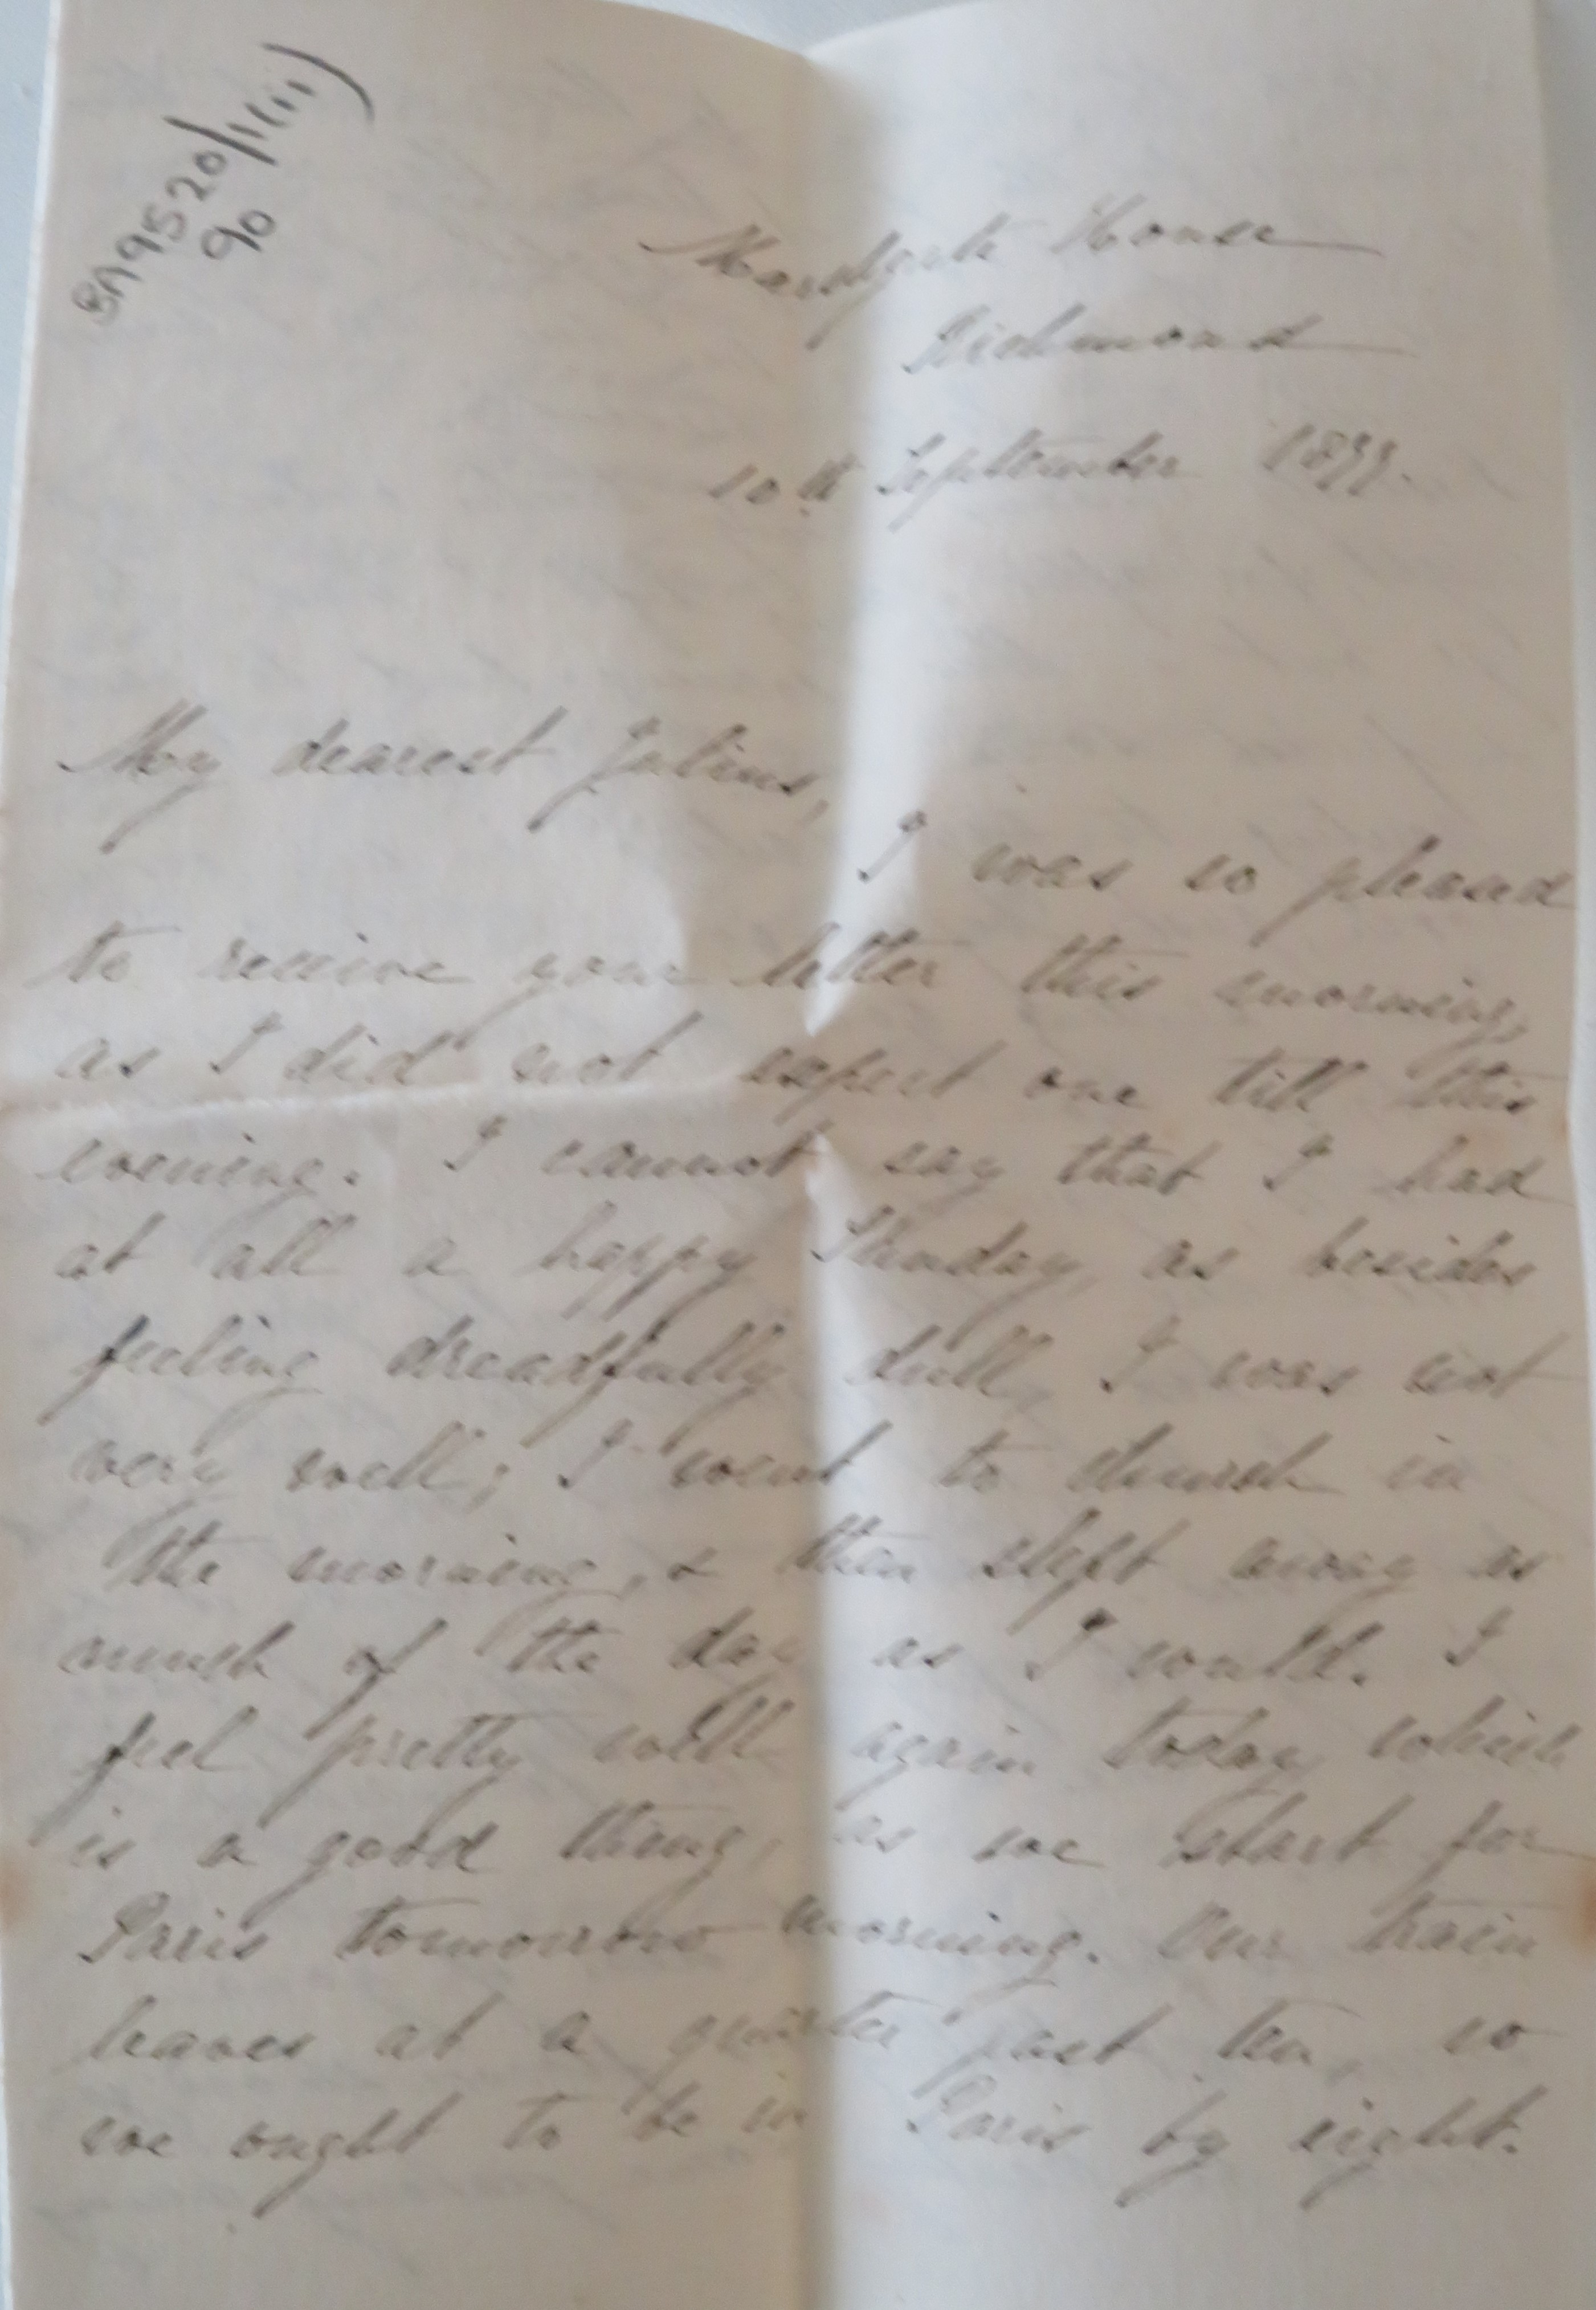 BA9520/1(iii)
90
House
Richmond
10th September 1877.
My dearest Julius,
I was so pleased
to receive your letter this morning,
as I did not expect one till this
evening. I cannot say that I had
at all a happy Sunday, as besides
feeling dreadfully dull, I was not
very well; I went to church in
the morning, & then slept away as
much of the day as I could. I
feel pretty well again today which
is a good thing, as we start for
Paris tomorrow morning. Our train
leaves at a quarter past ten, so
we ought to be in Paris by eight.